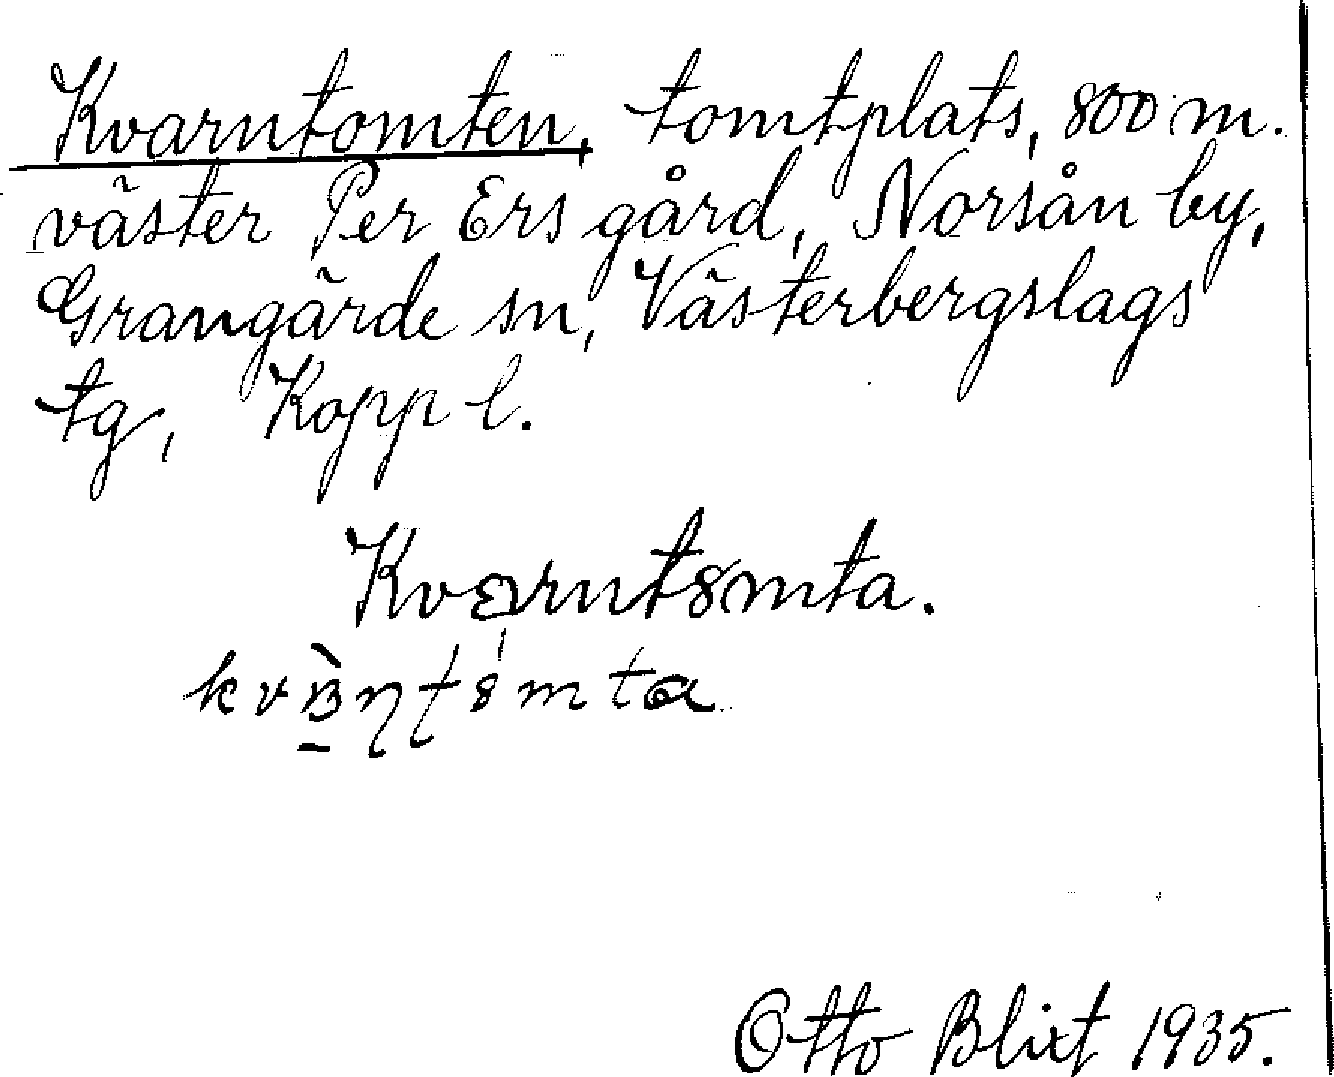 Kvarntomten, tomtplats, 800 m.
väster Per Ers gård, Norsån by,
Grangärde sn, Västerbergslags
tg, Kopp l.
Otto Blixt 1935.